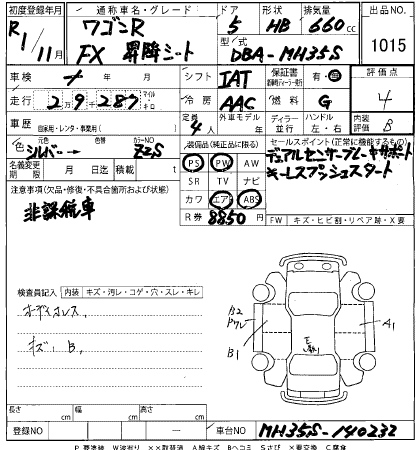 初度登録年月 通称車名・グレード ドア 形状 排気量 出品NO.
R1/11月 ワゴンR 5 HB 660cc 1015
FX 昇降シート 型式 DBA-MH35S
車検 年 月 シフト IAT 保証書 有・無 評価点
走行 29287 マイル キロ 冷房 AAC 燃料 G 4
車歴 自家用・レンタ・事業用( ) 定員 4人 外車モデル 年 ディーラー 並行 ハンドル 左・右 内装評価 B
色 元色 シルバー→ 色替 カラーNO Z2S 装備品(純正品に限る) セールスポイント(正常に機能する装備)
名義変更期限 月 日迄 積載 t PS PW AW デュアルセンサーブレーキサポート
注意事項(欠品・修復・不具合箇所および状態) SR TV ナビ キーレスプッシュスタート
非課税車 カワ エア ABS
R券 8850 FW キズ・ヒビ割・リペア跡・X要
検査員記入 内装 キズ・汚レ・コゲ・穴・スレ・キレ
オーディオレス B2
キズ、B、 A1
B1
長さ cm 幅 cm 高さ cm
登録NO 車台NO MH35S-140232
P要塗装 W波有り XX取替済 A線キズ Bヘコミ Sさび X要交換 C腐食